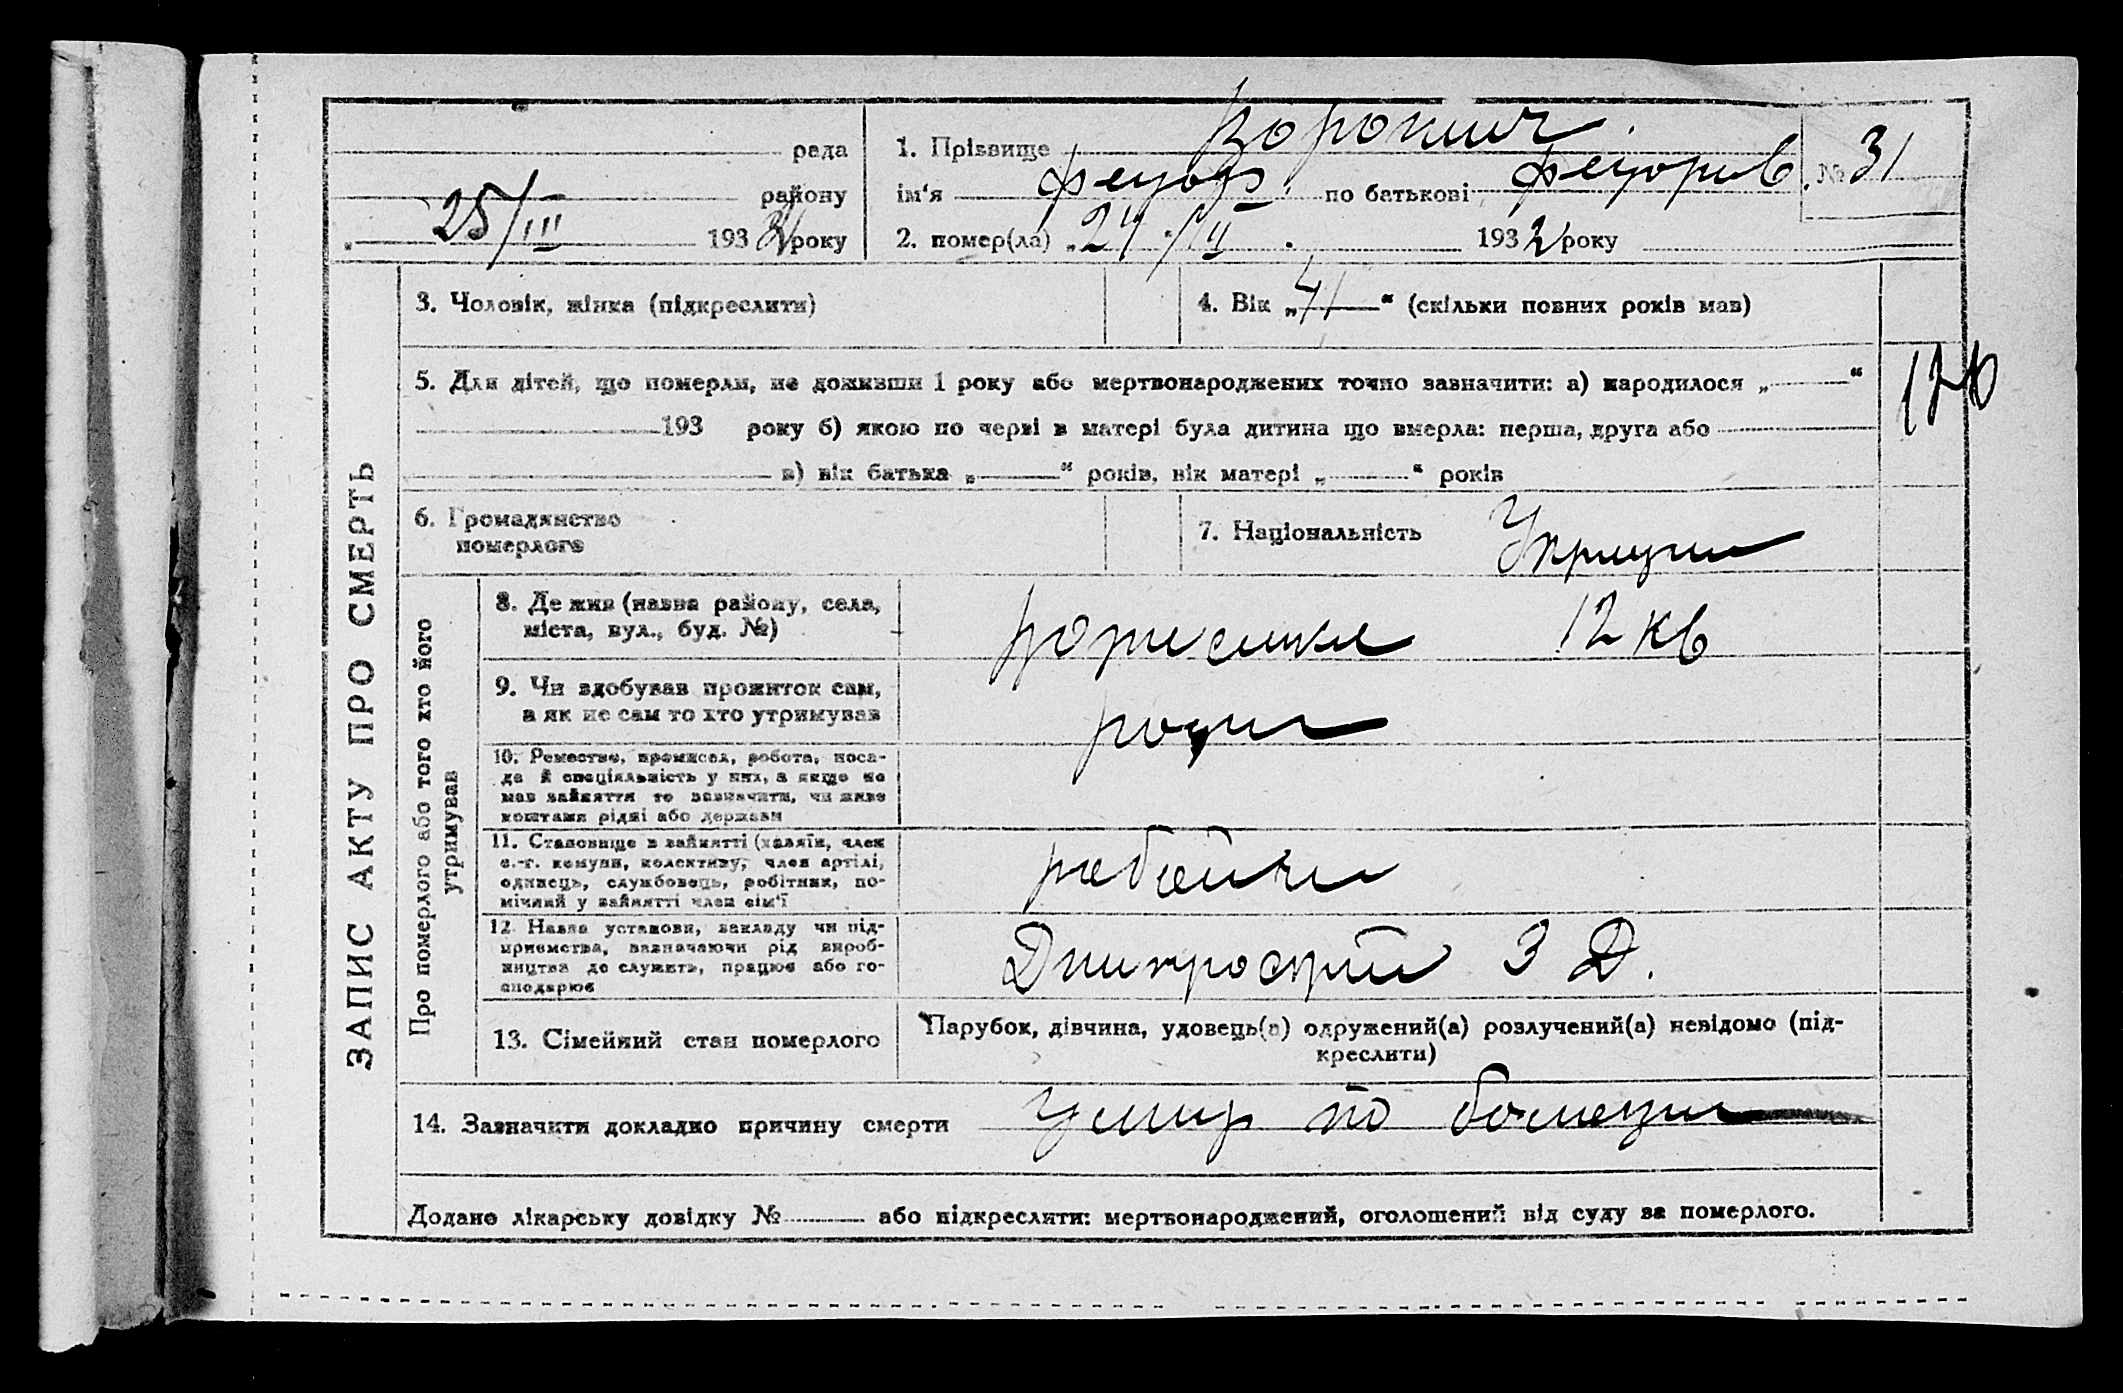 рада 1. Прізвище № 31
району ім'я по батькові
25/III 1932 року 2. помер(ла) „24 · III 1932 року
3. Чоловік, жінка (підкреслити) 4. Вік „41“ (скільки повних років мав)
5. Для дітей, що померли, не доживши 1 року або мертвонароджених точно зазначити: а) народилося „ “
193 року б) якою по черзі в матері була дитина що вмерла: перша, друга або
в) вік батька „ “ років, вік матері „ “ років
6. Громадянство
померлого
7. Національність
ЗАПИС АКТУ ПРО СМЕРТЬ
Про померлого або того хто його
утримував
8. Де жив (назва району, села,
міста, вул., буд. №)
12 кв
9. Чи здобував прожиток сам,
а як не сам то хто утримував
10. Ремество, промисел, робота, поса-
да й спеціяльність у них, а якщо не
мав зайняття то зазначити, чи живе
коштами рідні або держави
11. Становище в зайнятті (хазяїн, член
с.-г. комуни, колективу, член артілі,
одинець, службовець, робітник, по-
мічний у зайнятті член сім'ї
12. Назва установи, закладу чи під-
приємства, зазначаючи рід вироб-
ництва де служить, працює або го-
сподарює
З Д.
13. Сімейний стан померлого
Парубок, дівчина, удовець(а) одружений(а) розлучений(а) невідомо (під-
креслити)
14. Зазначити докладно причину смерти Умир по
Додано лікарську довідку № або підкреслити: мертвонароджений, оголошений від суду за померлого.